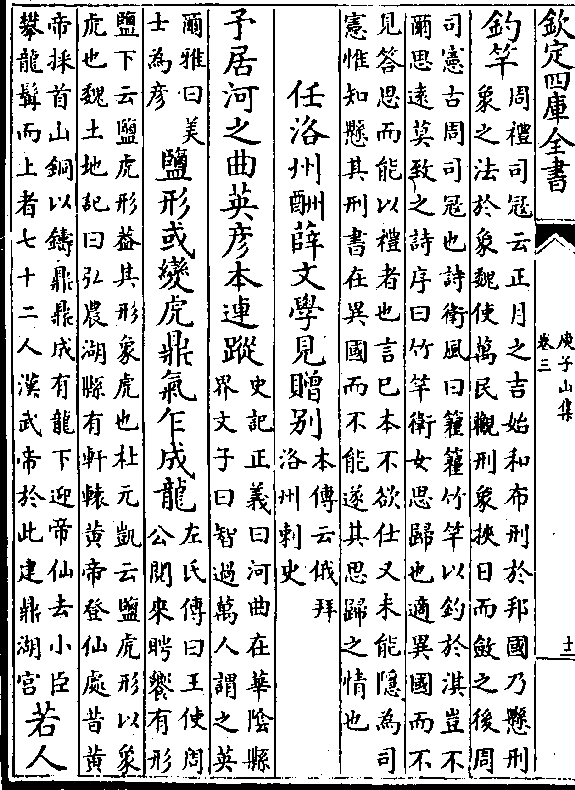 欽定四庫全書
庾子山集
卷三
十二
釣竿
周禮司冦云正月之吉始和布刑於邦國乃懸刑
象之法於象魏使萬民觀刑象挾日而斂之後周
司憲古周司冦也詩衛風曰籊籊竹竿以釣於淇豈不
爾思逺莫致之詩序曰竹竿衛女思歸也適異國而不
見答思而能以禮者也言已本不欲仕又未能隱為司
憲惟知懸其刑書在異國而不能遂其思歸之情也
任洛州酬薛文學見贈别
本傳云俄拜
洛州刺史
子居河之曲英彦本連蹤
史記正義曰河曲在華陰縣
界文子曰智過萬人謂之英
爾雅曰美
士為彦
鹽形或變虎鼎氣乍成龍
左氏傳曰王使周
公閱來聘饗有形
鹽下云鹽虎形葢其形象虎也杜元凱云鹽虎形以象
虎也魏土地記曰弘農湖縣有軒轅黄帝登仙處昔黄
帝採首山銅以鑄鼎鼎成有龍下迎帝仙去小臣
攀龍髯而上者七十二人漢武帝於此建鼎湖宫
若人